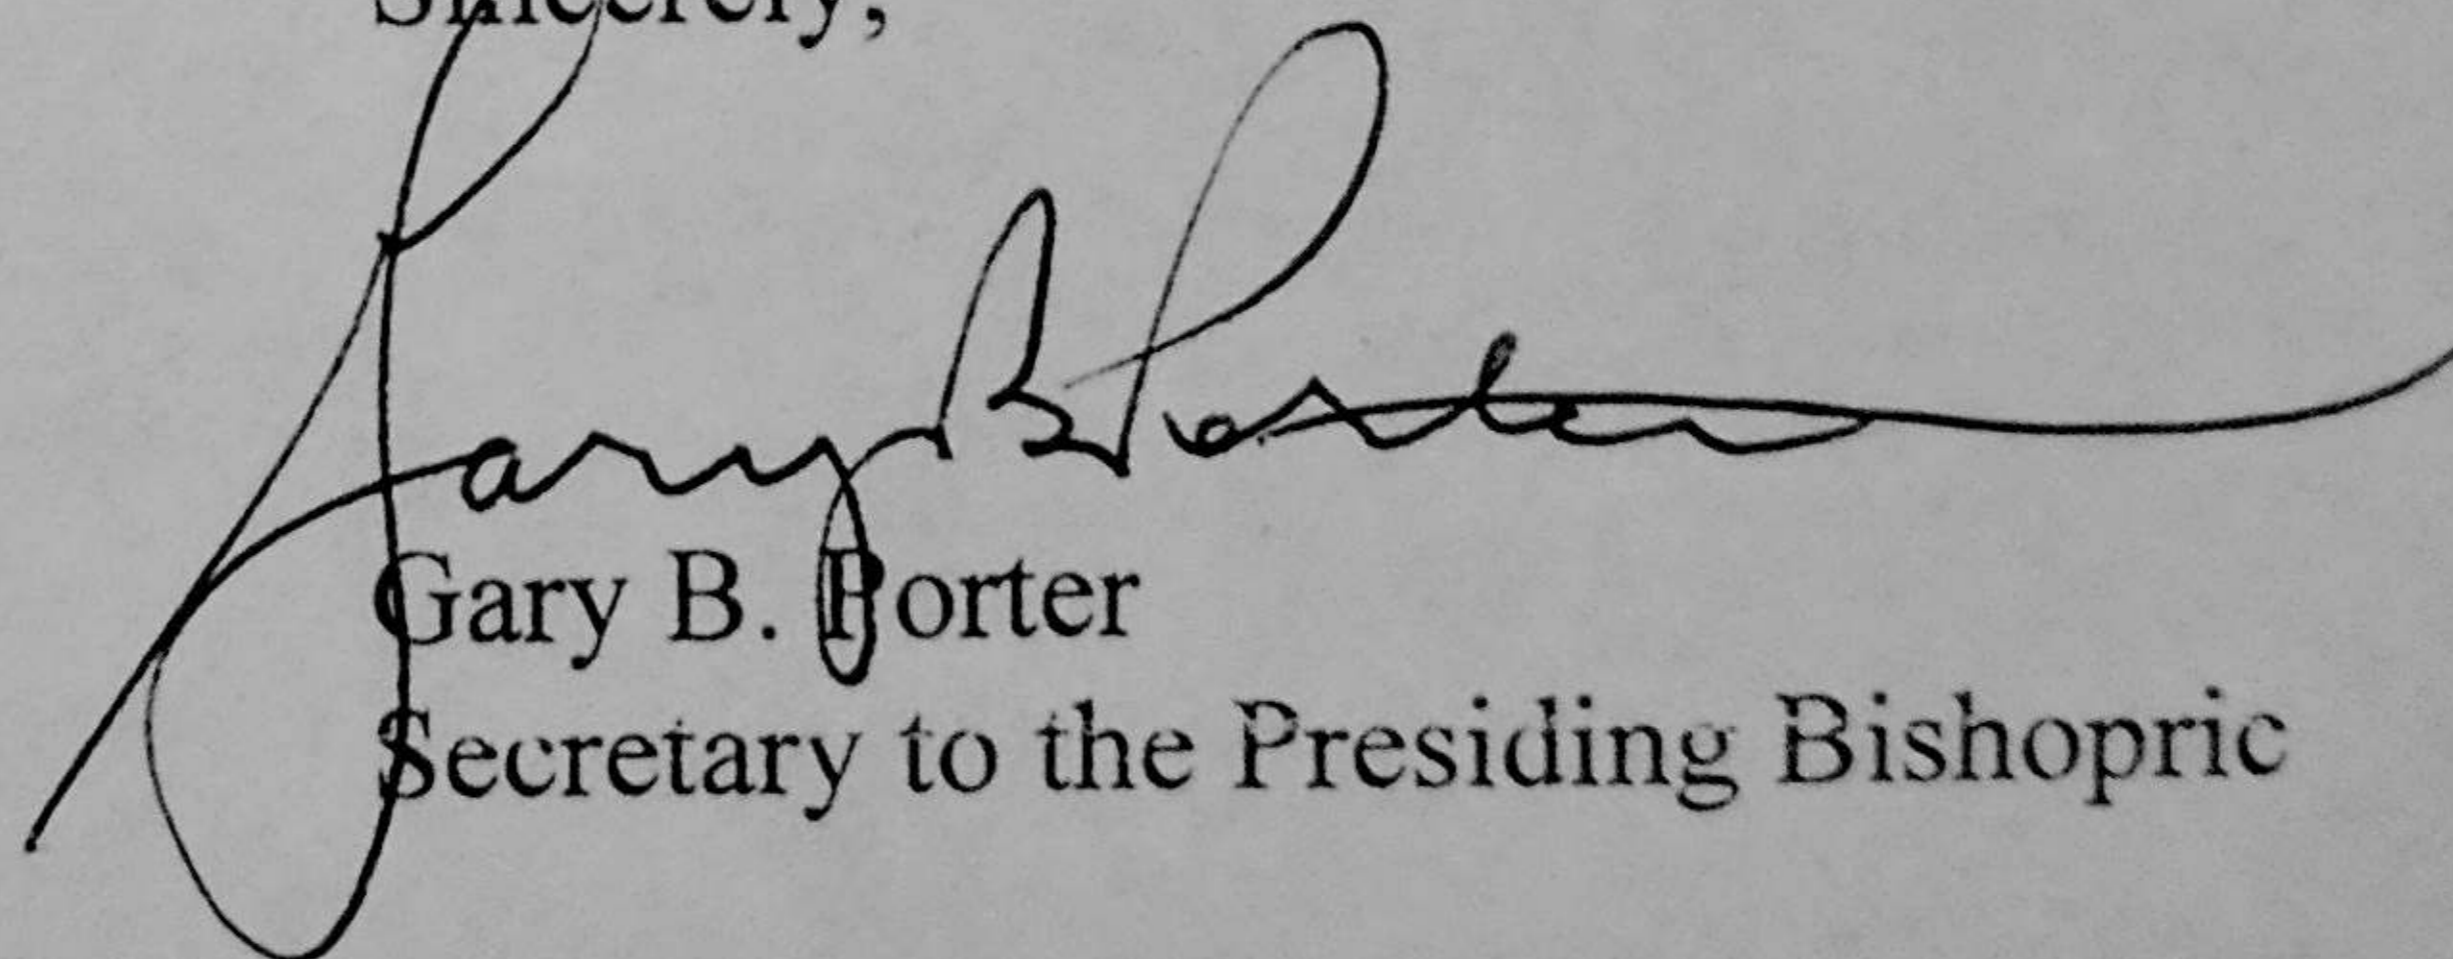 Sincerely,
Gary B Porter
Gary B. Porter
Secretary to the Presiding Bishopric